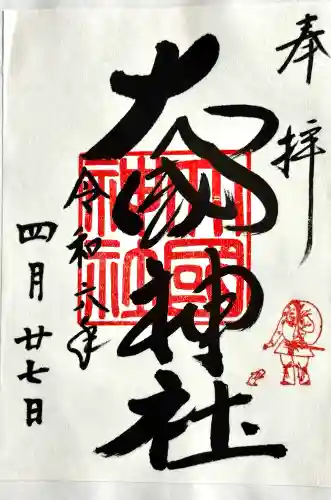 奉拝
大國神社
大國神社
令和六年
四月廿七日